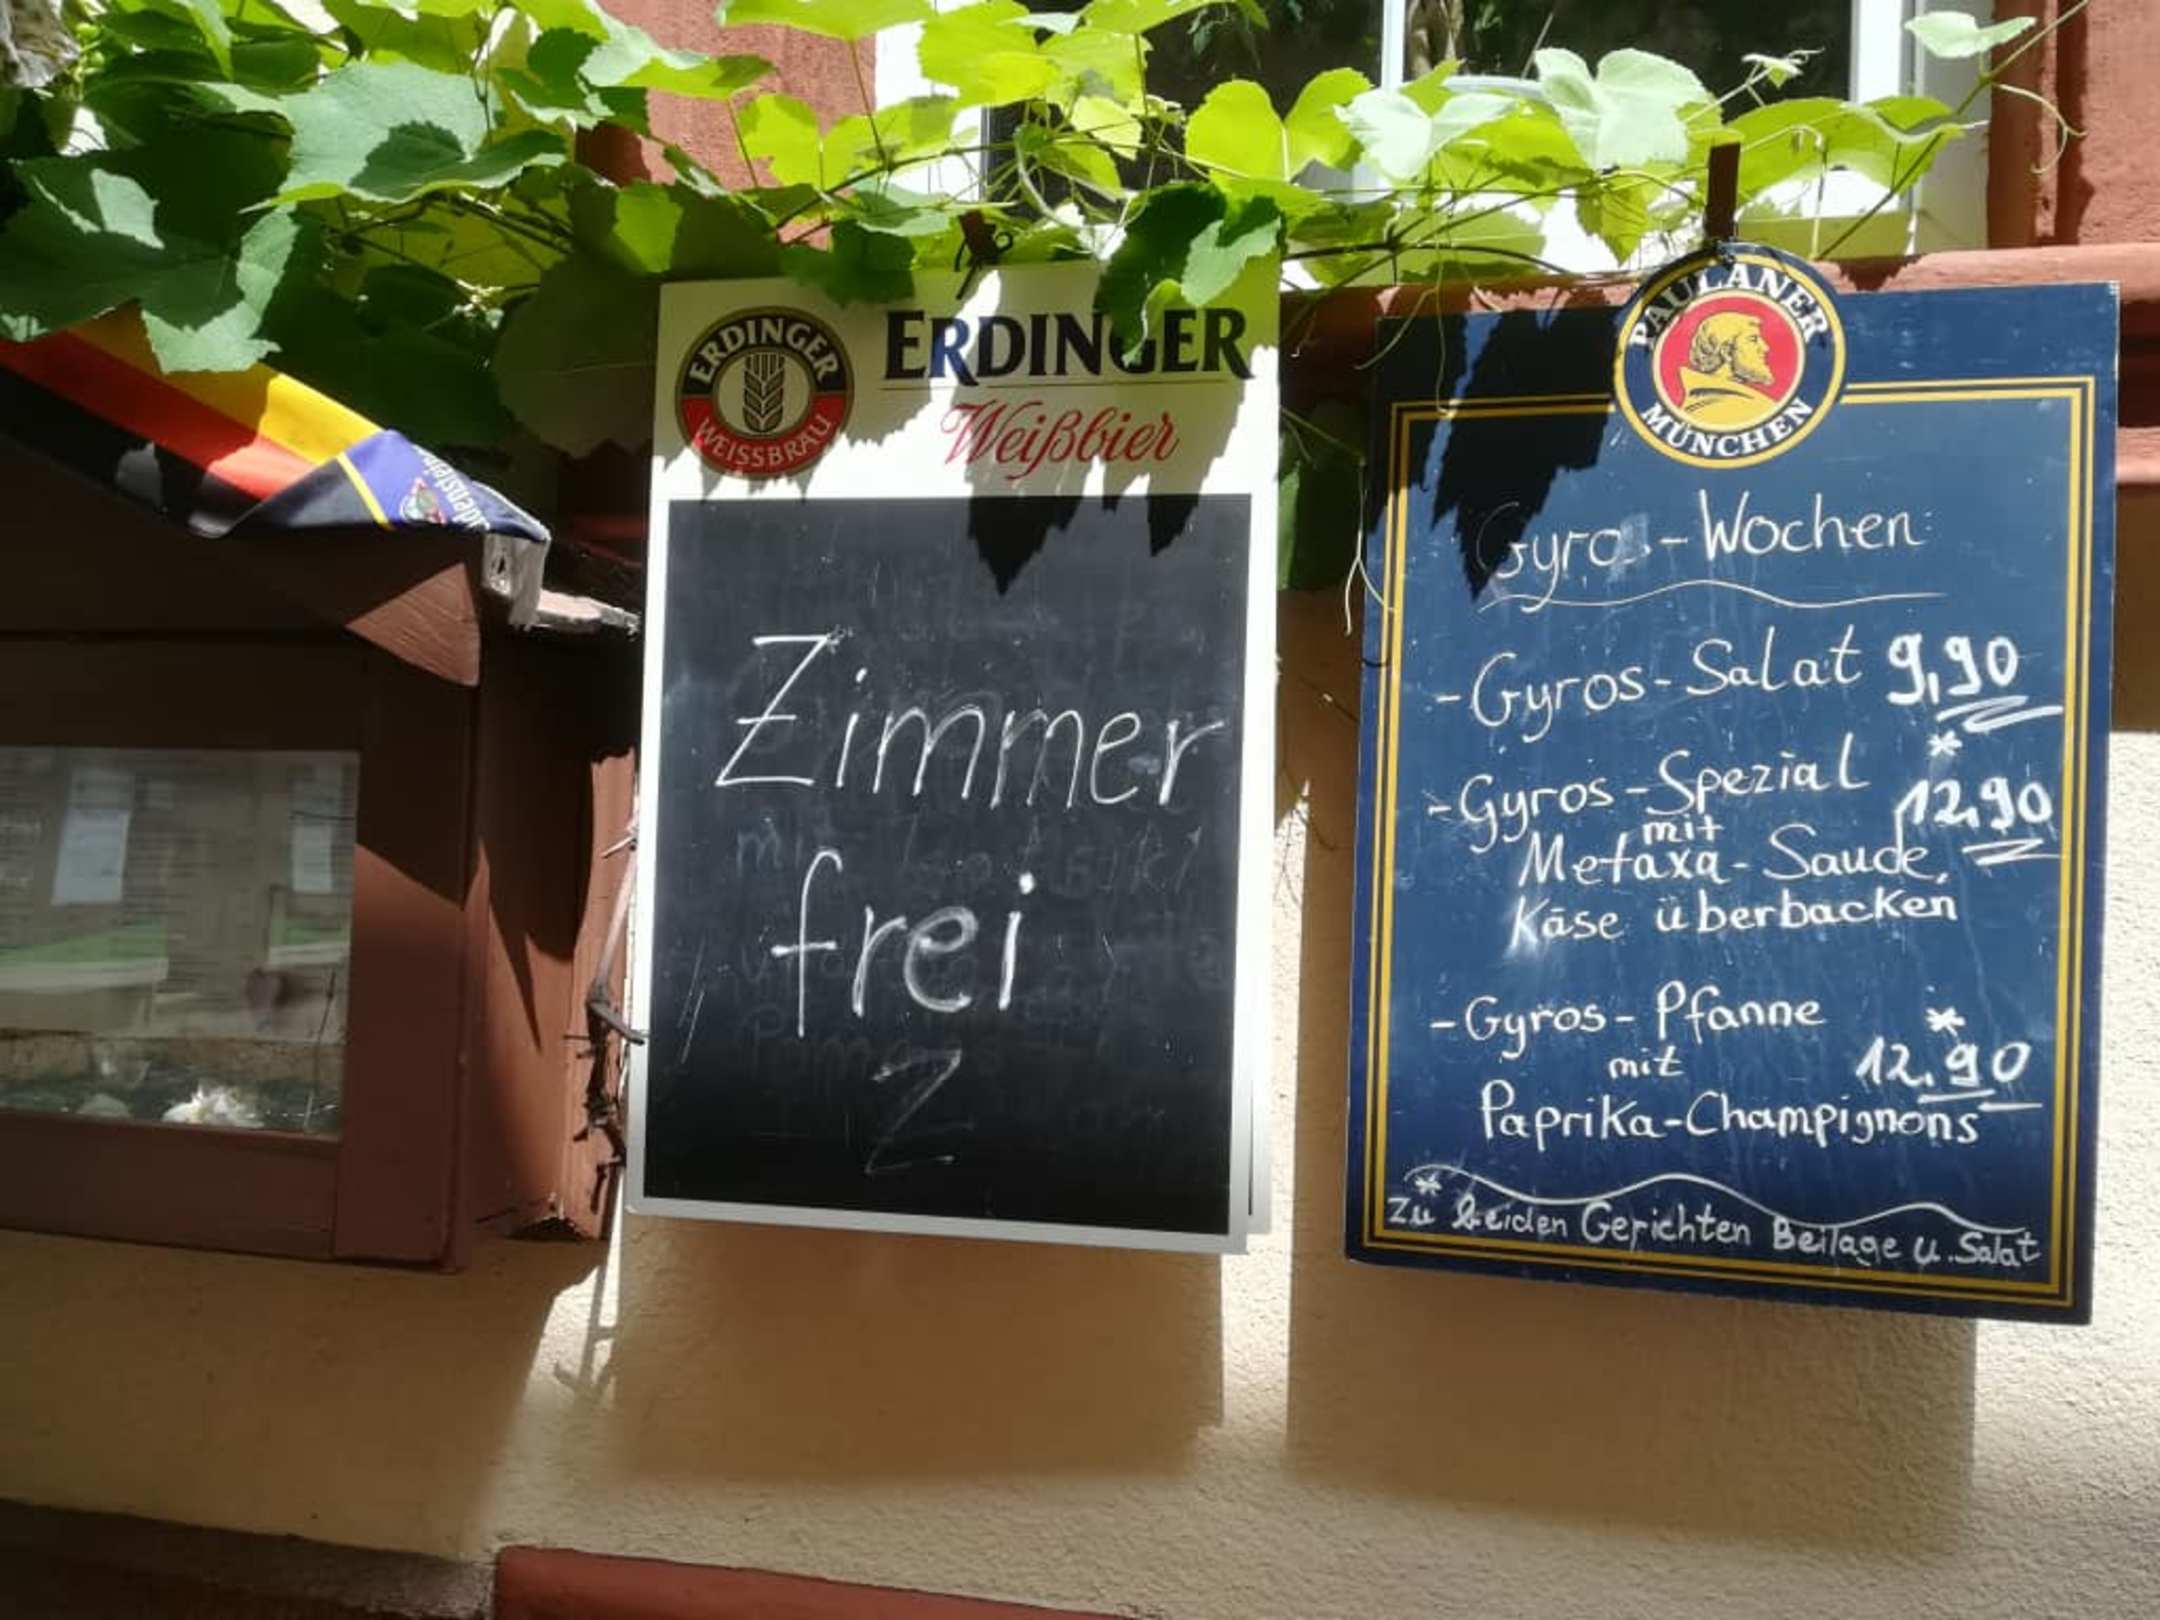 ERDINGER
WEISSBRÄU
ERDINGER
Weißbier
Zimmer
frei
Z
PAULANER
MÜNCHEN
Gyros-Wochen:
-Gyros-Salat 9,90
-Gyros-Spezial * 12,90
mit
Metaxa-Sauce,
Käse überbacken
-Gyros-Pfanne *
mit 12.90
Paprika-Champignons
* Zu beiden Gerichten Beilage u. Salat